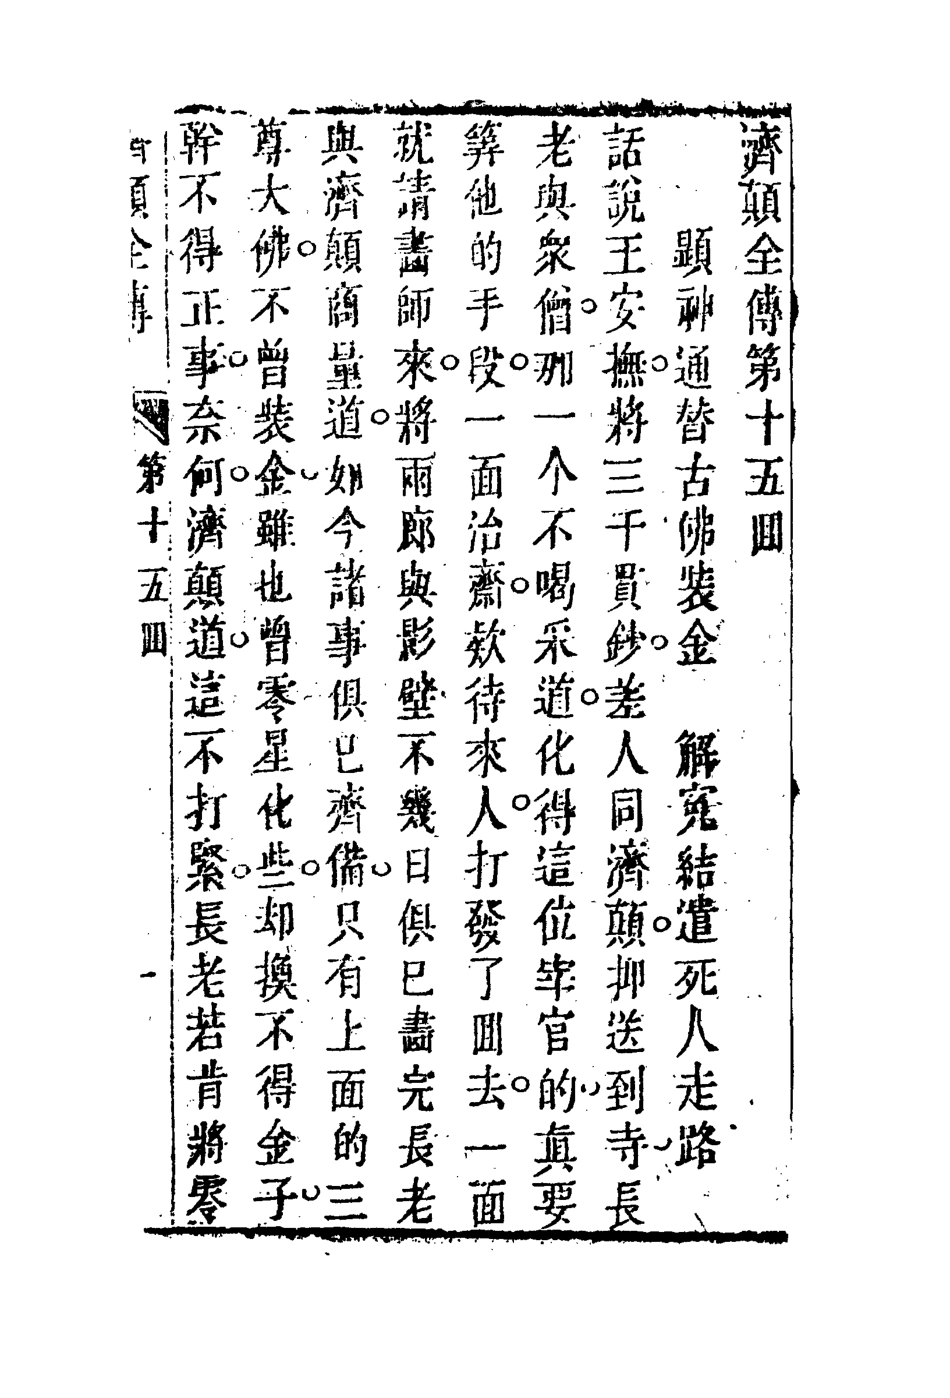 濟顛全傳第十五囬
顯神通替古佛裝金　解冤結遣死人走路
話說王安撫將三千貫鈔差人同濟顛押送到寺長
老與衆僧那一个不喝采道化得這位宰官的真要
筭他的手段一面治齋欵待來人打發了囬去一面
就請畵師來將兩廊與影壁不幾日俱已畵完長老
與濟顛商量道如今諸事俱已齊備只有上面的三
尊大佛不曾裝金雖也曾零星化些却換不得金子
幹不得正事奈何濟顛道這不打緊長老若肯將零
濟顛全傳　第十五囬　一